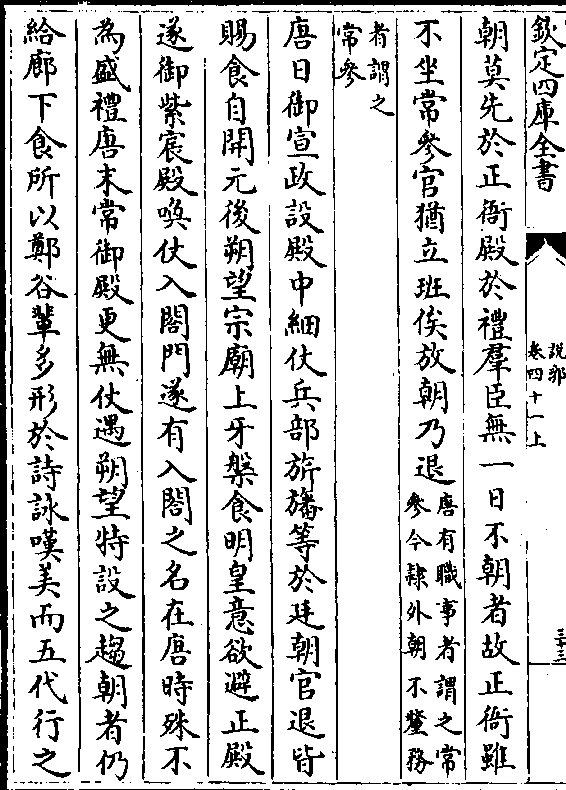 欽定四庫全書
說郛
卷四十一上
三十三
朝莫先於正衙殿於禮羣臣無一日不朝者故正衙雖
不坐常參官猶立班俟放朝乃退唐有職事者謂之常
參今隷外朝不釐務
者謂之
常參
唐日御宣政設殿中細仗兵部旂旛等於廷朝官退皆
賜食自開元後朔望宗廟上牙盤食明皇意欲避正殿
遂御紫宸殿喚仗入閤門遂有入閤之名在唐時殊不
為盛禮唐末常御殿更無仗遇朔望特設之趨朝者仍
給廊下食所以鄭谷輩多形於詩詠嘆美而五代行之